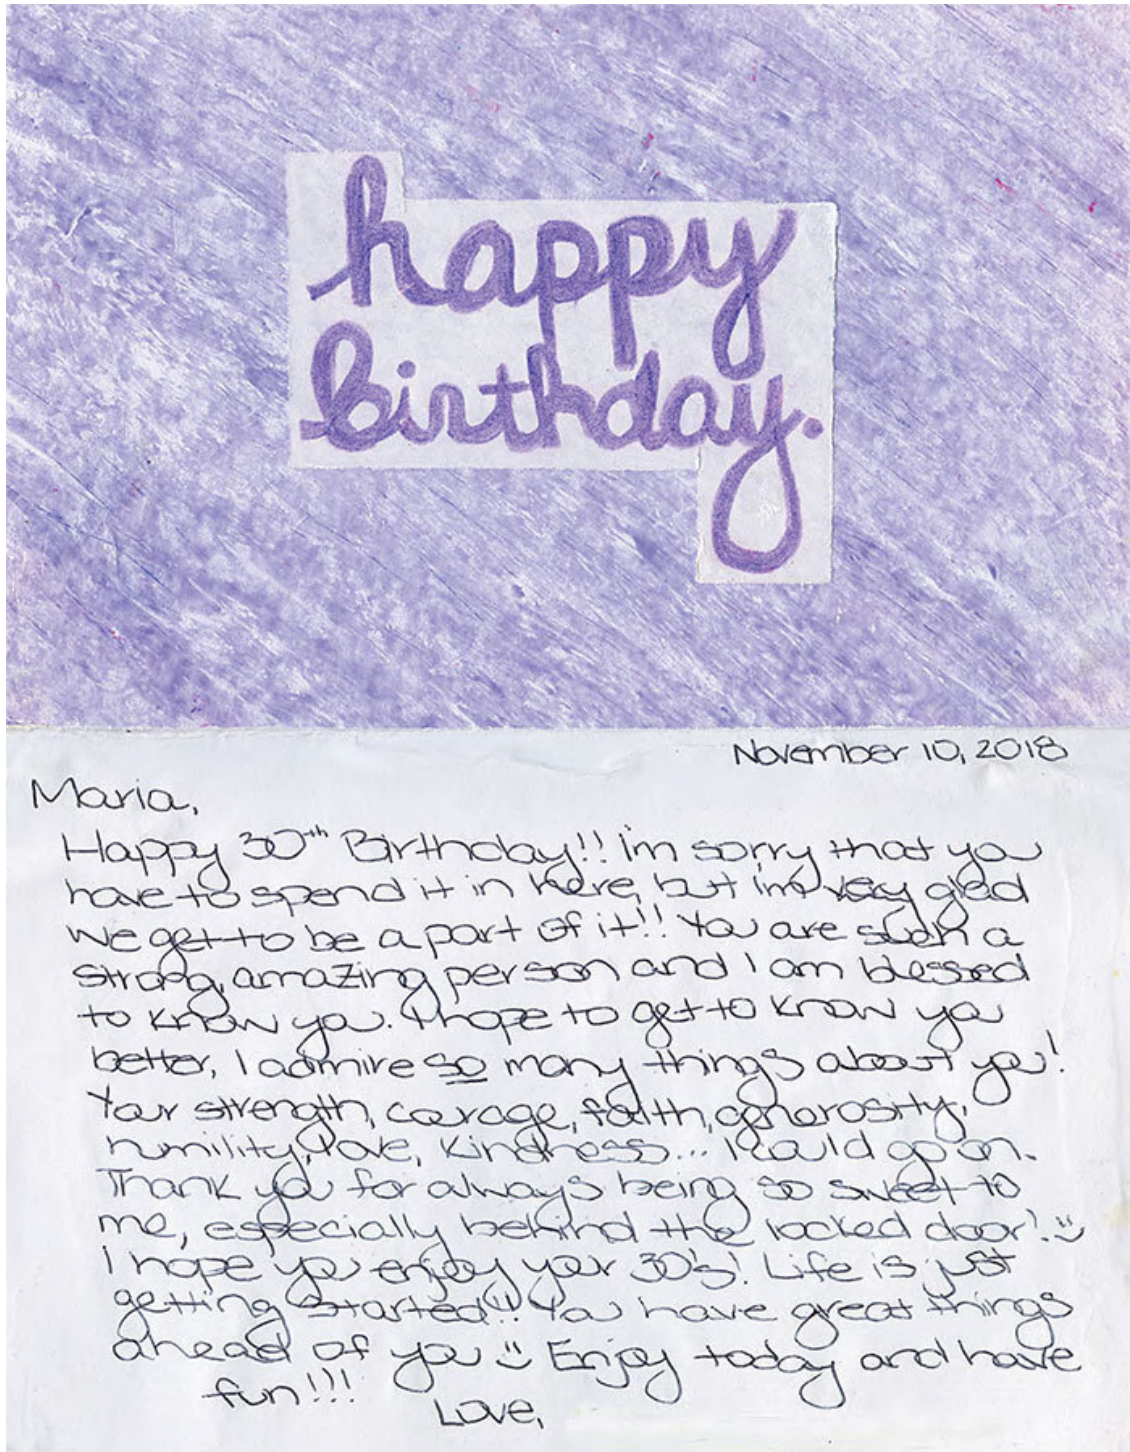 happy
birthday.
November 10, 2018
Maria,
Happy 30th Birthday!! i'm sorry that you
have to spend it in here, but i'm very glad
we get to be a part of it!! You are such a
strong, amazing person and I am blessed
to know you. I hope to get to know you
better, I admire so many things about you!
Your strength, courage, faith, generosity,
humility, love, kindness... I could go on.
Thank you for always being so sweet to
me, especially behind the locked door! :)
I hope you enjoy your 30's! Life is just
getting started!! You have great things
ahead of you :) Enjoy today and have
fun!!!
Love,